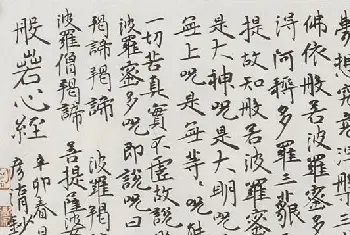 夢想究竟涅槃三
佛依般若波羅蜜多
得阿耨多羅三藐
提故知般若波羅蜜
是大神呪是大明呪
無上呪是無等〻呪能
一切苦真實不虛故說
波羅蜜多呪即說呪曰
羯諦羯諦 波羅羯
波羅僧羯諦 菩提薩婆
般若心經
辛卯春日